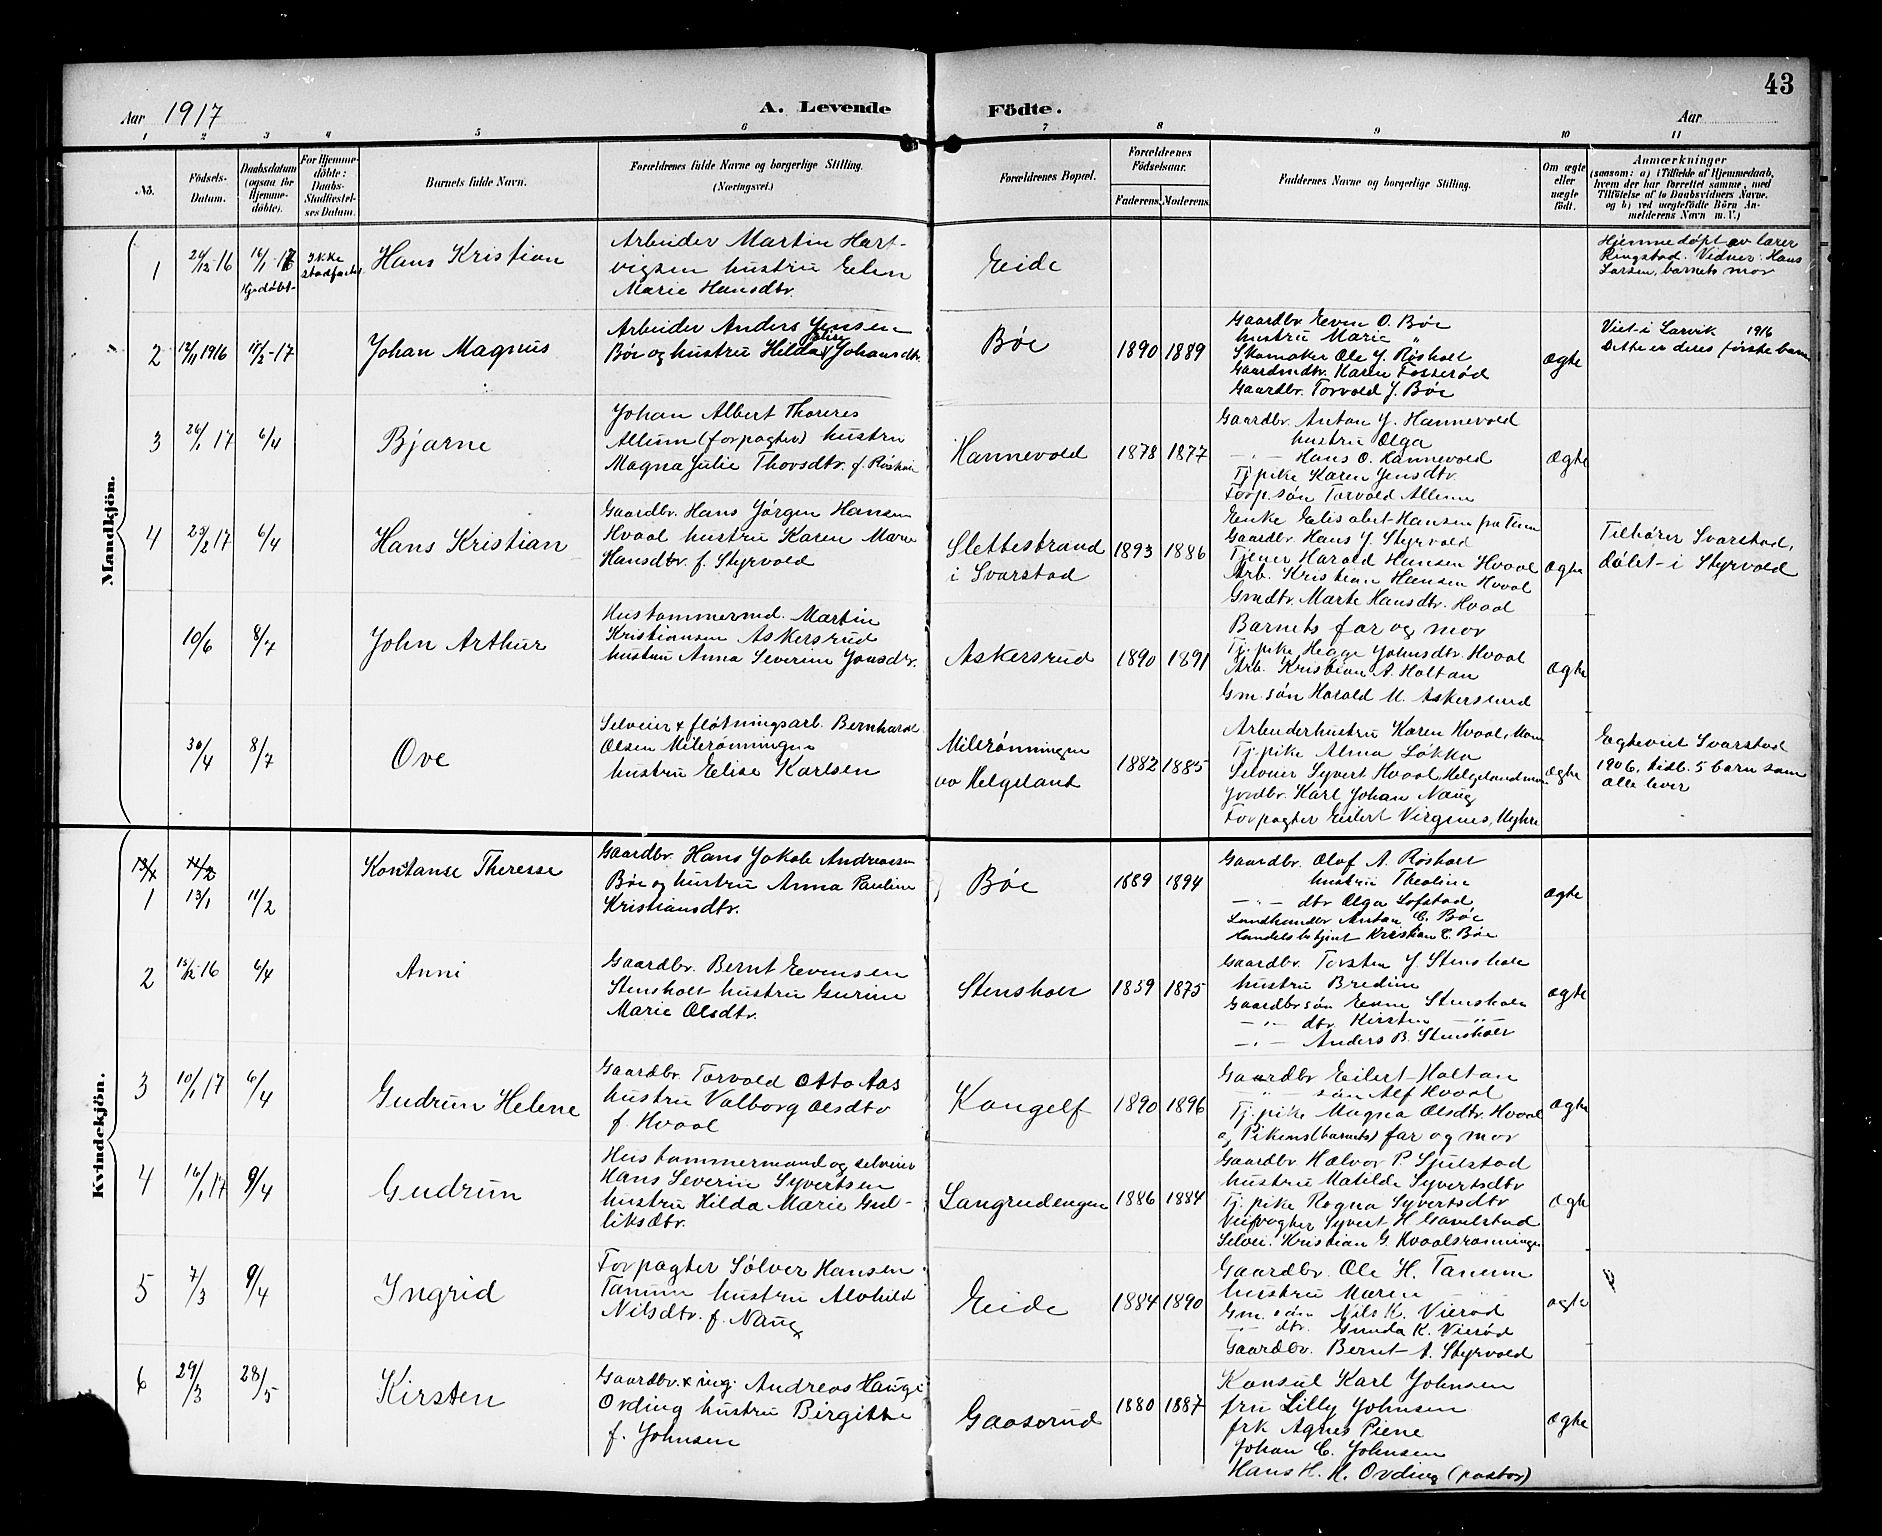 43
Aar 1917
A. Levende Födte.
Aar
1 2 3 4 5 6 7 8 9 10 11
No.
Födsels-Datum.
Daabsdatum (ogsaa för Hjemme-döbte).
For Hjemme-döbte: Daabs-Stadfæstel-ses Datum.
Barnets fulde Navn.
Forældrenes fulde Navne og borgerlige Stilling.
(Næringsvei.)
Forældrenes Bopæl.
Forældrenes Födselsaar.
Faderens. Moderens.
Faddernes Navne og borgerlige Stilling.
Om ægte eller uægte födt.
Anmærkninger
(saasom: a) i Tilfælde af Hjemmedaab,
hvem der har forrettet samme, med
Tilföielse af to Daabsvidners Navne.
og b) ved uægtefödte Börn An-
melderens Navn m. V.)
Mandkjön.
1
Hjedöbt
Ikke
Hans Kristian
Arbeider Martin Hart-
vigsen hustru Elen
Marie Hansdtr.
Eide
Hjemmedøpt av lærer
Ringstad. Vidner: Hans
Larsen, barnets mor
2
12/11 1916
Johan Magnus
Arbeider Anders Jensen
Bøe og hustru Hilda Johansdtr
Bøe
1890 1889
Gaardbr. Even O. Bøe
hustru Marie „
Skomaker Ole J. Røsholt
Karen Fosserød
Gaardbr. Torvold J. Bøe
ægte
Viet i Larvik 1916
Dette er deres første barn
3
26/1 17
6/4
Bjarne
Johan Albert Thoreres
Allum (forpagter) hustru
Magna Julie Thorsdtr. f.
Hannevold
1878 1877
Gaardbr. Anton J. Hannevold
hustru Olga
Hans O. Hannevold
Tj. pike Karen Jensdtr.
Forp. søn Torvald Allum
ægte
4
25/2 17
6/4
Hans Kristian
Gaardbr. Hans Jørgen Hansen
Hvaal hustru Karen Marie
Hansdtr. f. Styrvold
Slettestrand
i Svarstad
1893 1886
Enke Elisabet Hansen fra
Gaardbr. Hans J. Styrvold
Tjener Harald Hansen Hvaal
Arb. Kristian Hansen Hvaal
Gmdtr. Marte Hansdtr. Hvaal
ægte
Tilhører Svarstad,
døbt i Styrvold
10/6
8/7
John Arthur
Hustømmermd. Martin
Kristiansen Askersrud
hustru Anna Severine Jonsdtr.
Askersrud
1890 1891
Barnets far og mor
Tj. pike Hegge Johnsdtr. Hvaal
Arb. Kristian A. Holtan
Gm. søn Harald M. Askersrud
ægte
30/4
8/7
Ove
Selveier & fløtningsarb. Bernhard
Olsen Milerønningen
hustru Elise Karlsen
Milerønningen
vo Helgeland
1882 1885
Arbeiderhustru Karen Hvaal,
Tj. pike Alma Løkka
Selveier Syvert Hvaal,
Jordbr. Karl Johan Naug
Forpagter Eilert Virgnes,
ægte
Egteviet Svarstad
1906, tidl. 5 barn som
alle lever
Kvindekjön.
1
13/1
11/2
Konstanse Theresse
Gaardbr. Hans Jakob Andreassen
Bøe og hustru Anna Pauline
Kristiansdtr.
Bøe
1889 1894
Gaardbr. Olaf A. Røsholt
hustru Theoline
dtr Olga Lofstad
Landhandler Anton C. Bøe
Handelsbetjent Kristian C. Bøe
ægte
2
15/12-16
6/4
Anni
Gaardbr. Bernt Evensen
Stensholt hustru Gurine
Marie Olsdtr.
Stensholt
1859 1875
Gaardbr. Torsten J. Stensholt
hustru Bredine
Gaardbr søn Even Stensholt
dtr. Kirsten
Anders B. Stensholt
ægte
3
10/1 17
6/4
Gudrun Helene
Gaardbr. Torvald Otto Aas
hustru Valborg Olsdtr
f. Hvaal
Kongelf
1890 1896
Gaardbr Eilert Holtan
søn Alf Hvaal
Tj. pike Magna Olsdtr. Hvaal
og Pikens (barnets) far og mor
ægte
4
16/1 17
9/4
Gudrun
Hustømmermand og selveier
Hans Severin Syvertsen
hustru Hilda Marie Gul-
liksdtr.
Langrudengen
1886 1884
Gaardbr. Halvor P. Sjulstad
hustru Matilde Syvertsdtr
Tj. pike Ragna Syvertsdtr
Veivogter Syvert H Gavelstad
Selvei. Kristian G. Hvaalsrønningen
ægte
5
7/3
9/4
Ingrid
Forpagter Sølver Hansen
Tanum hustru Alvhild
Nilsdtr. f. Naug
Eide
1884 1890
Gaardbr. Ole H. Tanum
hustru Maren
Gm. søn Nils K. Vierød
dtr. Gunda K. Vierød
Gaardbr. Bernt A. Styrvold
ægte
6
29/3
28/5
Kirsten
Gaardbr & ing. Andreas Hauge
Ording hustru Birgitte
f. Johnsen
Gaaserud
1880 1887
Konsul Karl Johnsen
fru Lilly Johnsen
frk Agnes Piene
Johan C. Johnsen
Hans H. H. Ording (pastor)
ægte